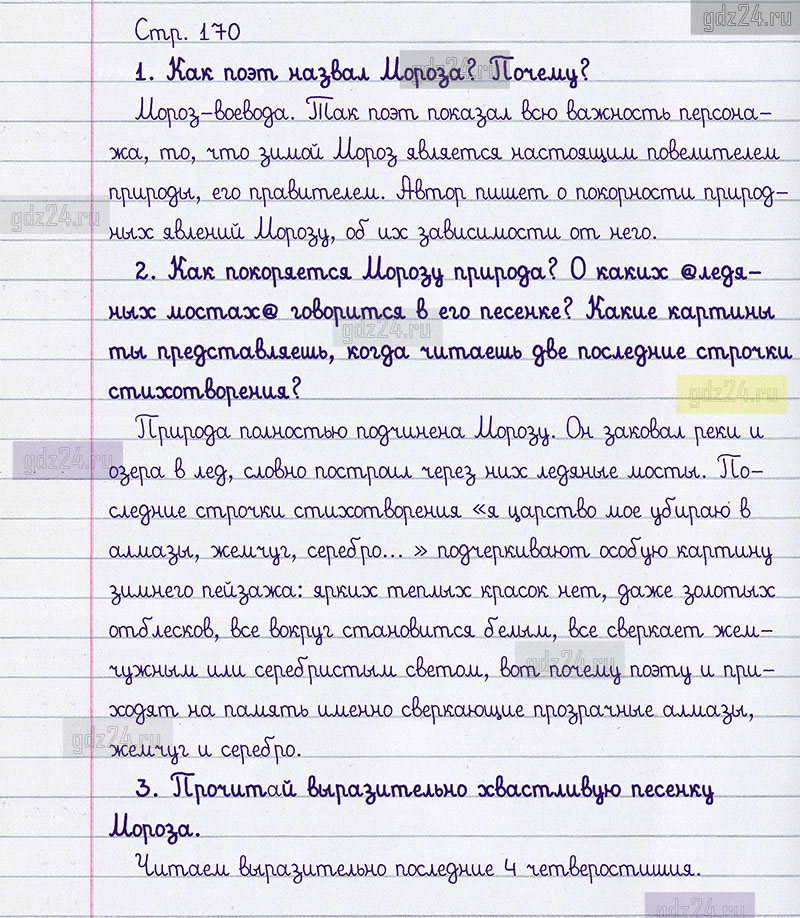 gdz24.ru
Стр. 170
1. Как поэт назвал Мороза? Почему?
gdz24.ru
Мороз-воевода. Так поэт показал всю важность персона-
жа, то, что зимой Мороз является настоящим повелителем
природы, его правителем. Автор пишет о покорности природ-
gdz24.ru
ных явлений Морозу, об их зависимости от него.
2. Как покоряется Морозу природа? О каких @ледя-
ных мостах@ говорится в его песенке? Какие картины
gdz24.ru
ты представляешь, когда читаешь две последние строчки
стихотворения?
gdz24.ru
Природа полностью подчинена Морозу. Он заковал реки и
gdz24.ru
озера в лед, словно построил через них ледяные мосты. По-
следние строчки стихотворения «я царство мое убираю в
алмазы, жемчуг, серебро... » подчеркивают особую картину
зимнего пейзажа: ярких теплых красок нет, даже золотых
отблесков, все вокруг становится белым, все сверкает жем-
чужным или серебристым светом, вот почему поэту и при-
gdz24.ru
ходят на память именно сверкающие прозрачные алмазы,
gdz24.ru
жемчуг и серебро.
3. Прочитай выразительно хвастливую песенку
Мороза.
Читаем выразительно последние 4 четверостишия.
gdz24.ru